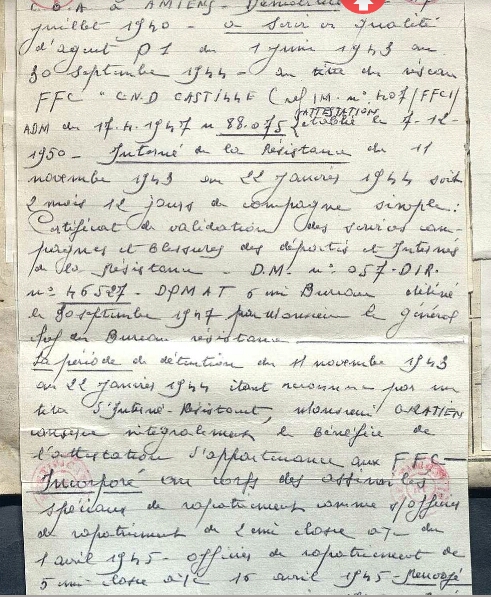 à AMIENS - Démobilisé
juillet 1940 - a servi en qualité
d'agent P1 du 1 juin 1943 au
30 septembre 1944 - au titre du réseau
FFC "C.N.D CASTILLE (ref IM. n° 407/FFCI/
ADM du 17.4.1947 n° 88.075 ATTESTATION établie le 7-12-
1950 - Interné de la Résistance du 11
novembre 1943 au 22 janvier 1944 soit
2 mois 12 jours de campagne simple:
Certificat de validation des services cam-
pagnes et blessures des déportés et Internés
de la Résistance - D.M- n° 057-DIR.
n° 46527 - DPMAT 6 mi Bureau délivré
le 30 septembre 1947 par Monsieur le général
chef du Bureau résistance
La période de détention du 11 novembre 1943
au 22 janvier 1944 étant reconnue par un
titre d'Interné-Résistant, Monsieur
conserve intégralement le bénéfice de
l'attestation d'appartenance aux FFC -
Incorporé au corps des assimilés
spéciaux de rapatriement comme s/officier
de rapatriement de 2 mi classe a/c du
1 avril 1945 - officier de rapatriement de
5 mi classe a/c 16 avril 1945 - Renvoyé